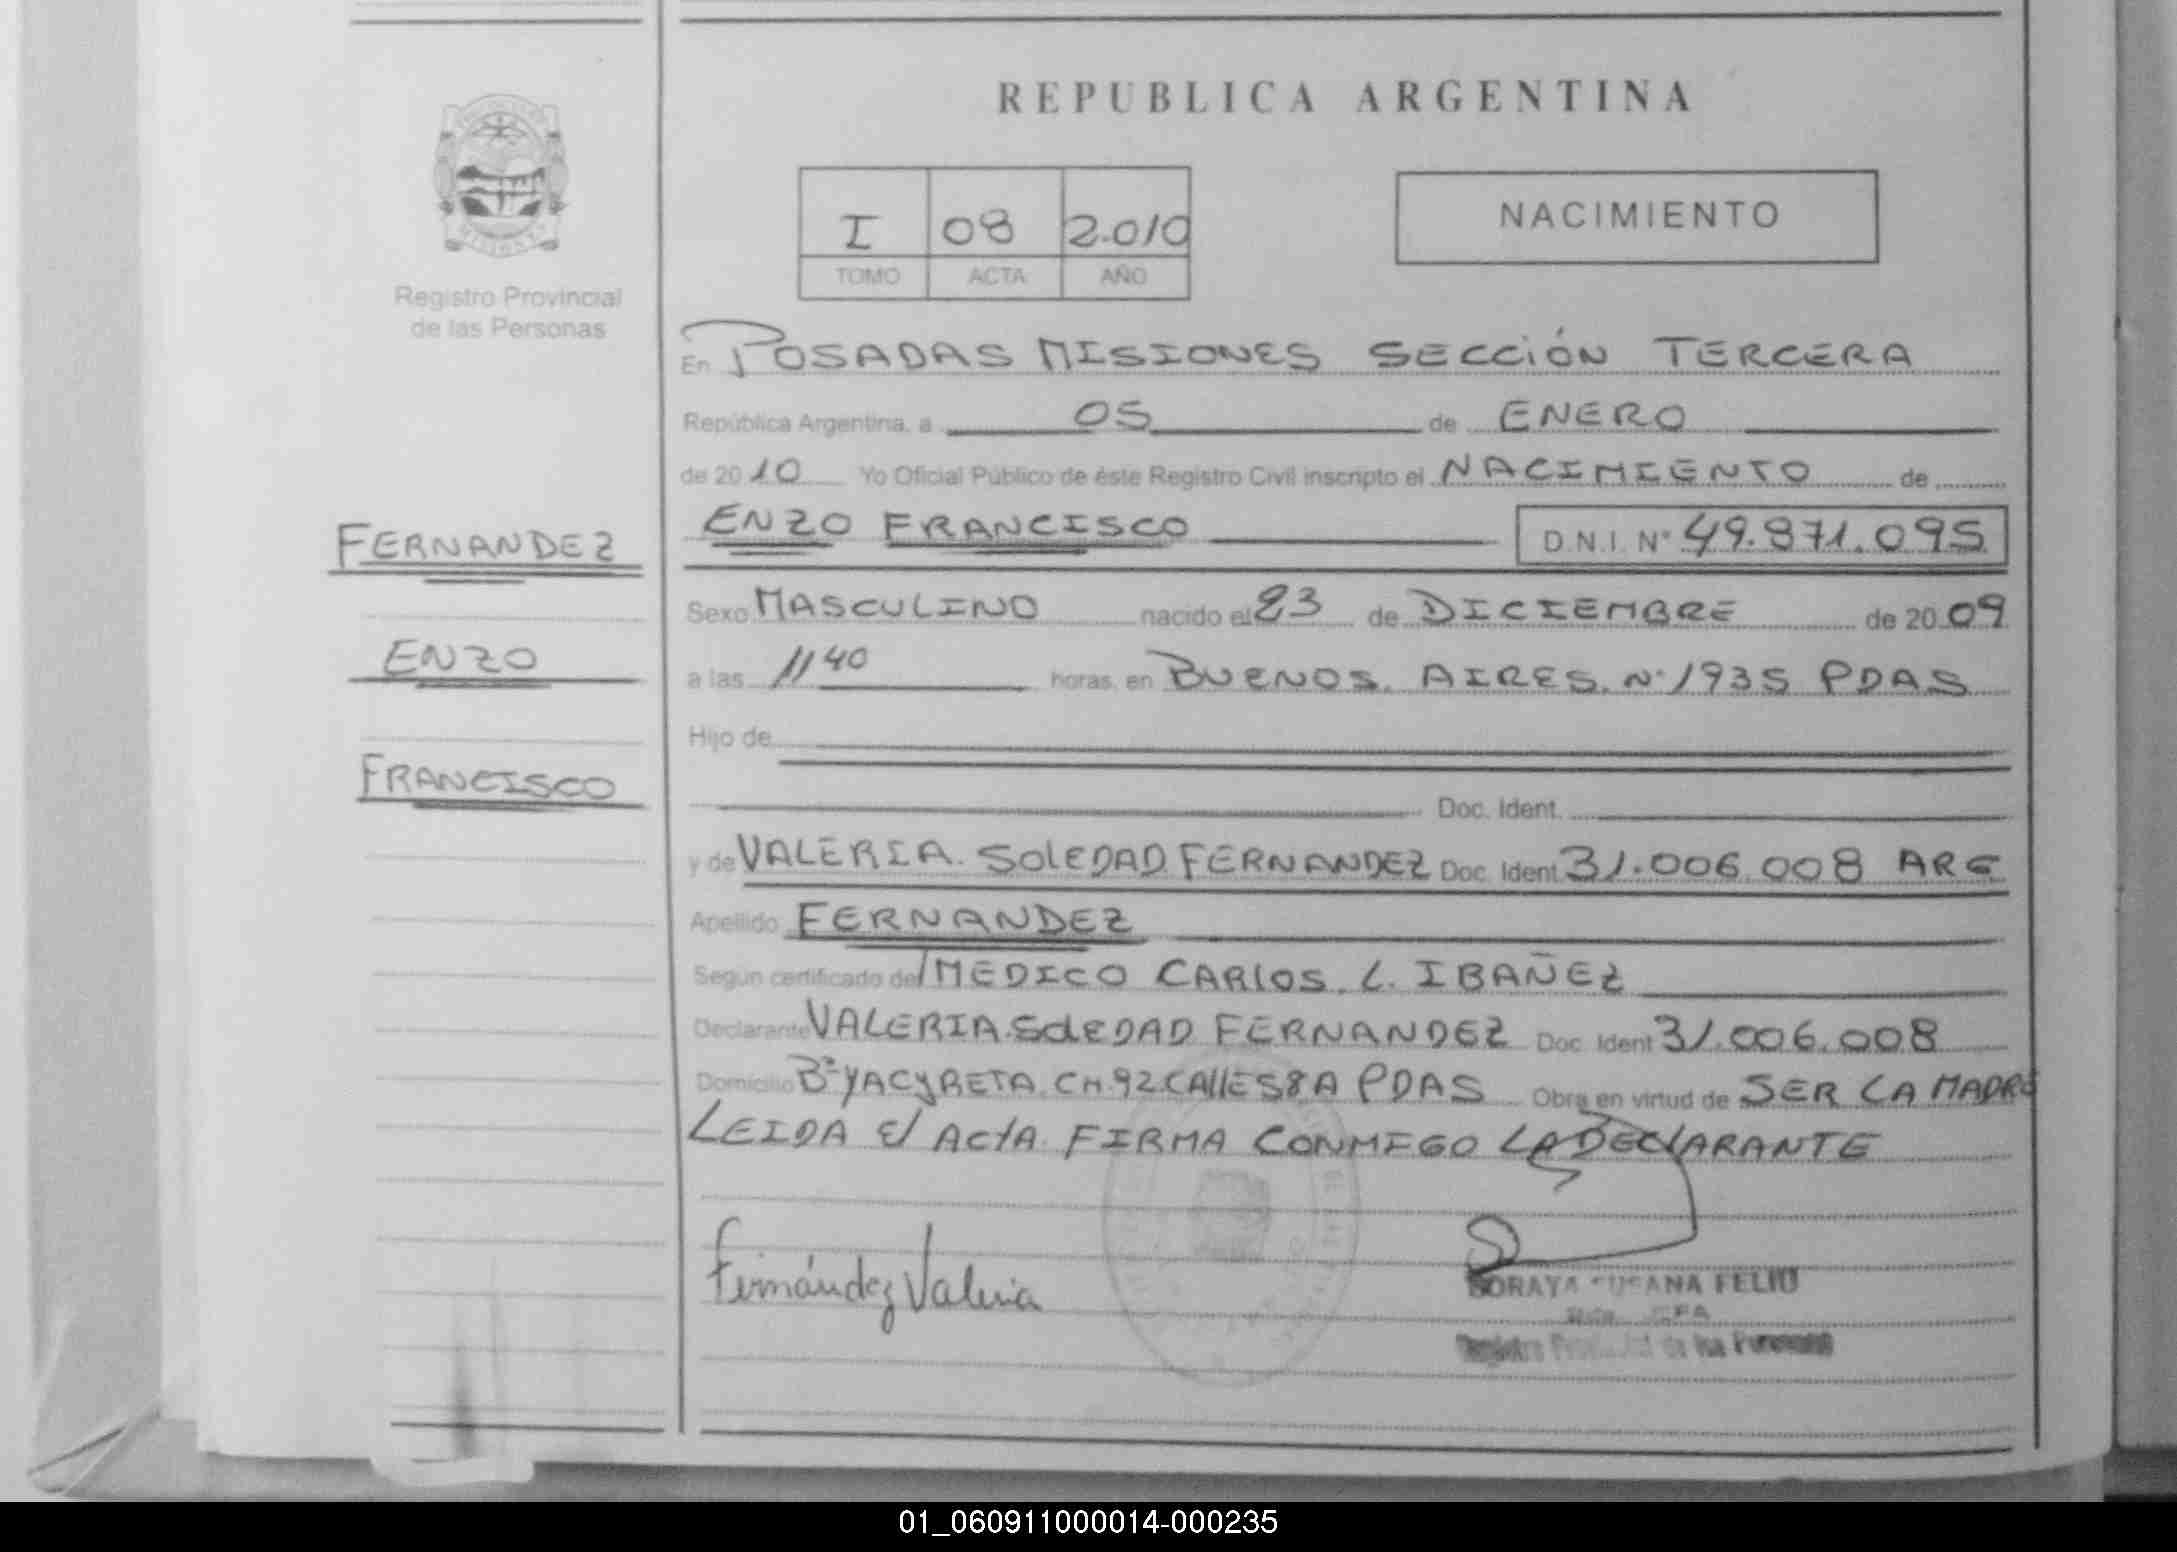 REPUBLICA ARGENTINA
I 08 2.010
TOMO ACTA AÑO
NACIMIENTO
MISIONES
Registro Provincial
de las Personas
En POSADAS MISIONES SECCIÓN TERCERA
República Argentina, a 05 de ENERO
de 2010 Yo Oficial Público de éste Registro Civil inscripto el NACIMIENTO de
ENZO FRANCISCO D.N.I. N° 49.971.095
FERNANDEZ
ENZO
FRANCISCO
Sexo MASCULINO nacido el 23 de DICIEMBRE de 2009
a las 11 40 horas, en BUENOS. AIRES. N° 1935 PDAS
Hijo de
Doc. Ident.
y de VALERIA. SOLEDAD FERNANDEZ Doc. Ident. 31.006.008 ARG
Apellido FERNANDEZ
Según certificado del MEDICO CARLOS. L. IBAÑEZ
Declarante VALERIA. SOLEDAD FERNANDEZ Doc. Ident 31.006.008
Domicilio B° YACYRETA. CH. 92 CALLE 58 A PDAS Obra en virtud de SER LA MADRE
LEIDA el ACTA FIRMA CONMIGO LA DECLARANTE
Fernández Valeria
SORAYA SUSANA FELIU
JEFA
Registro Provincial de las Personas
01_060911000014-000235